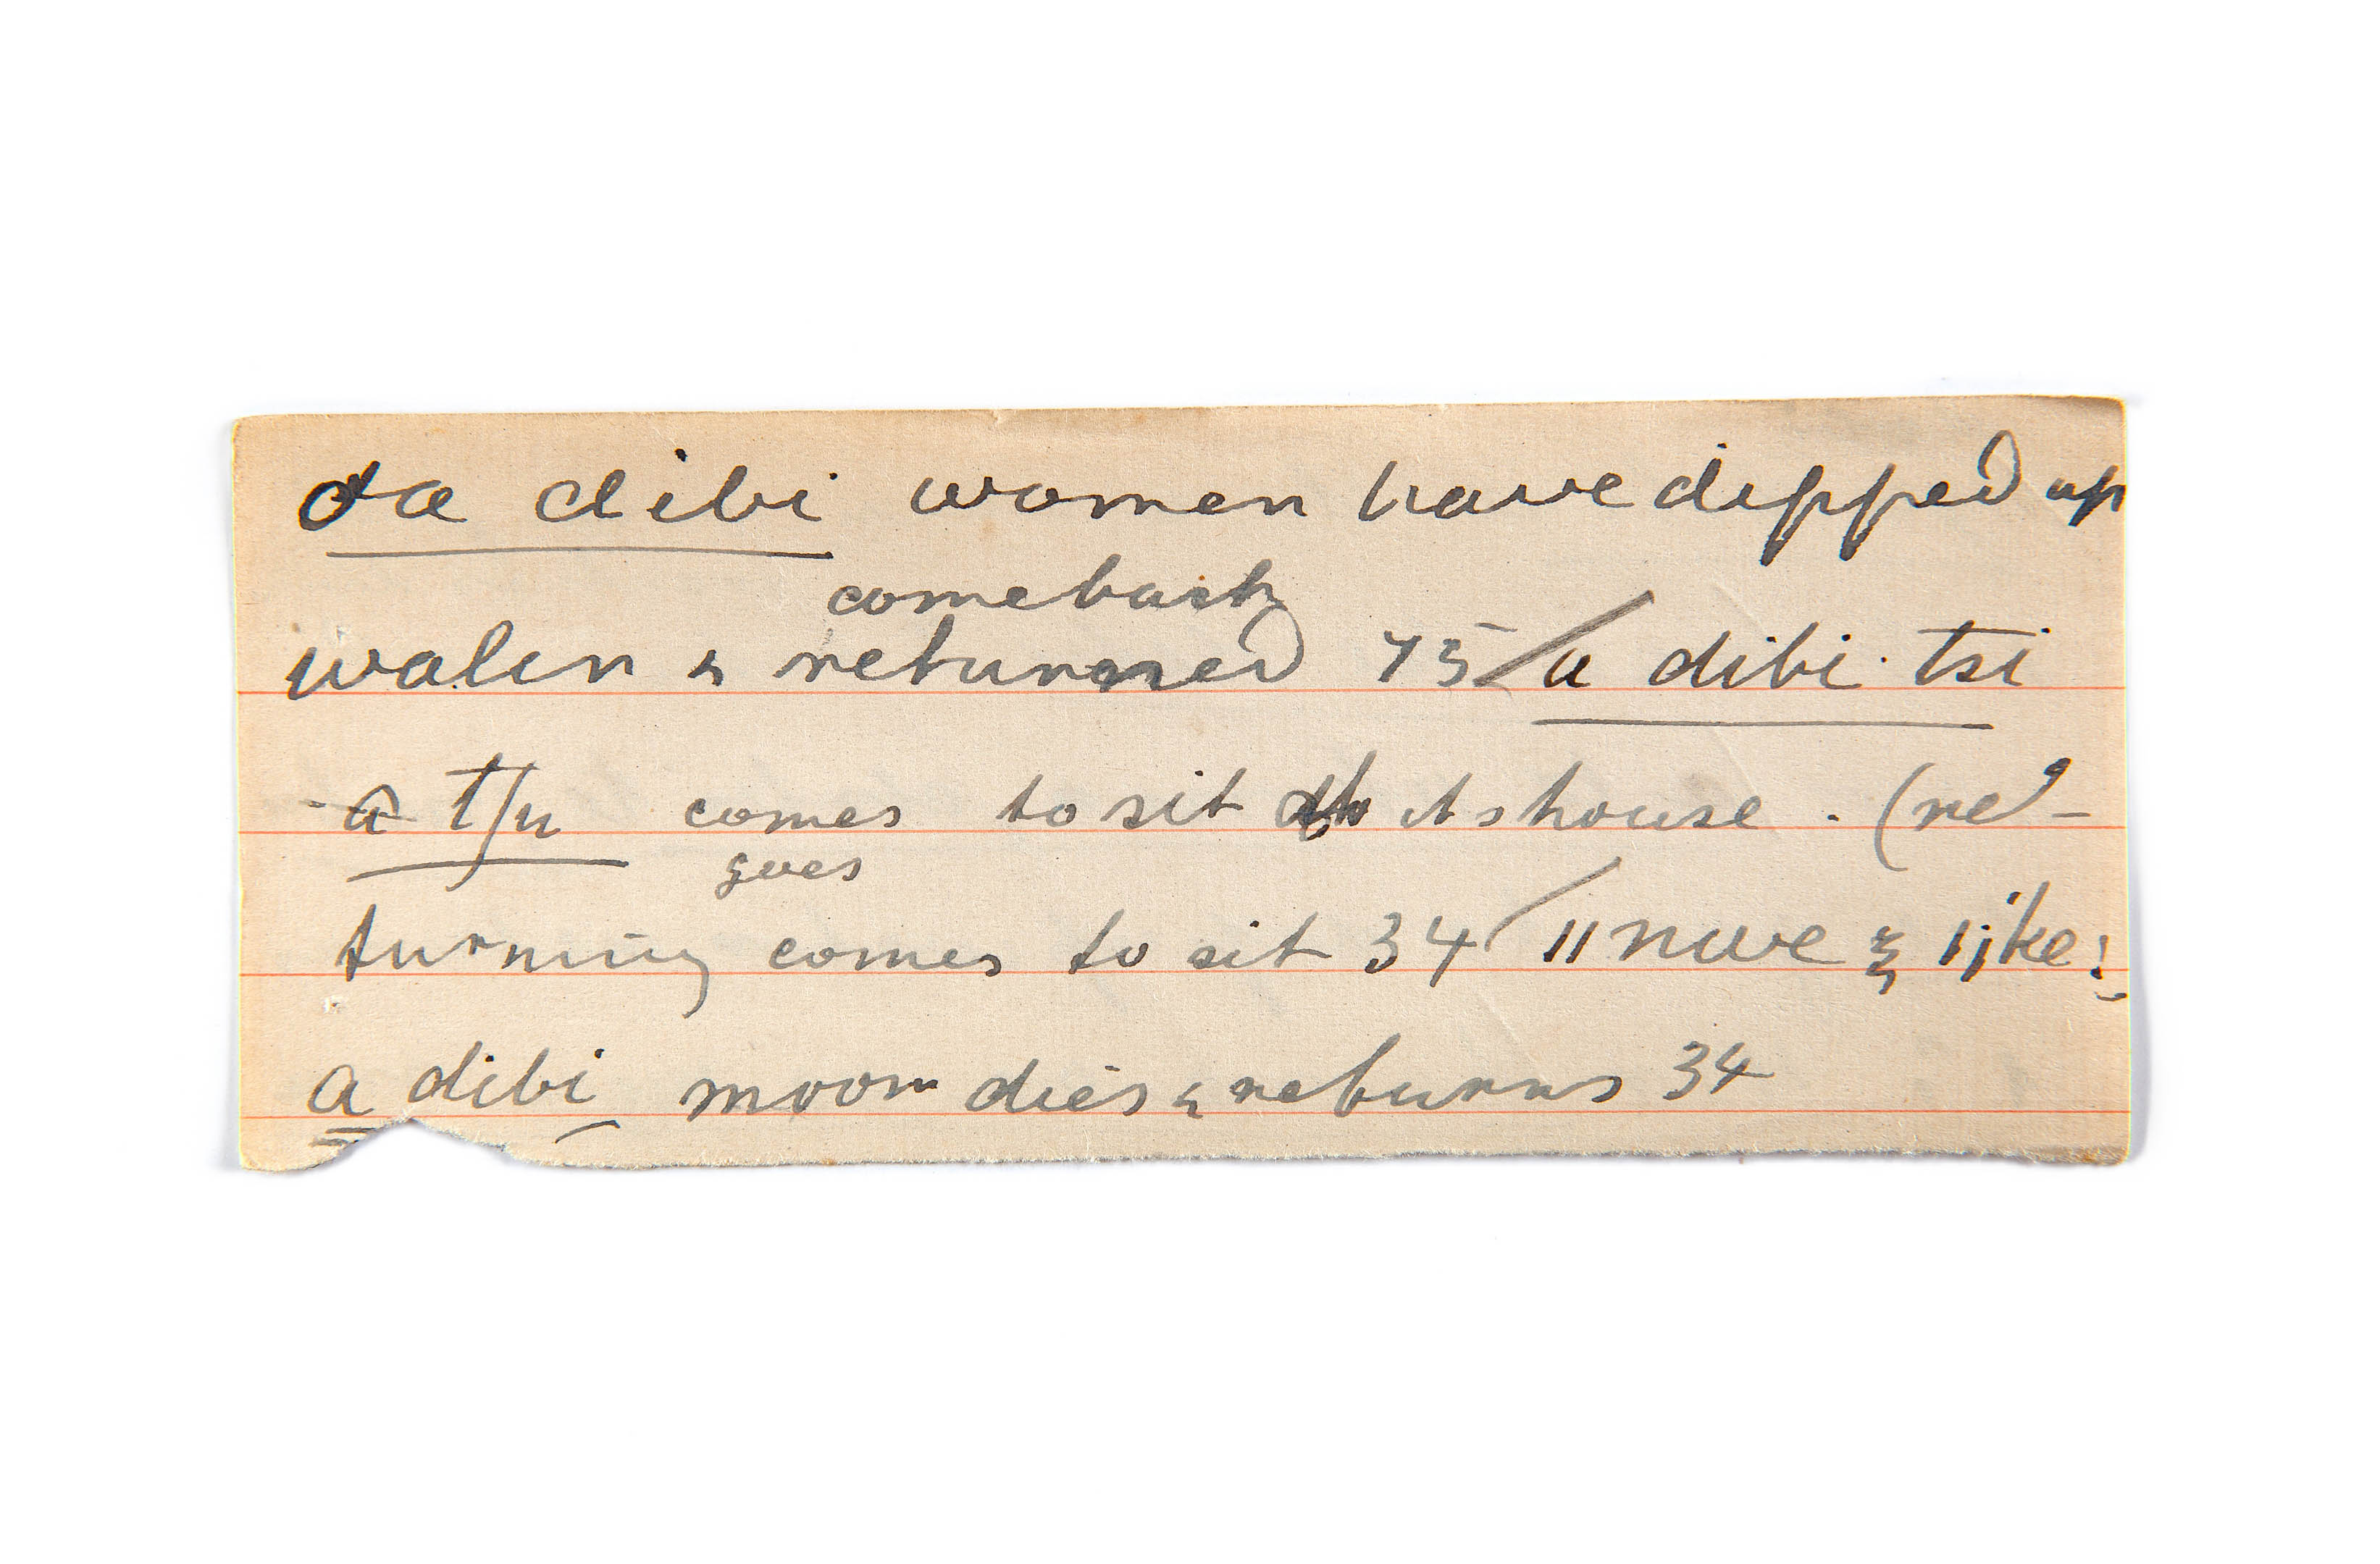 ta dibi women have dipped up
come back
water & returned 75 / a dibi tsi
a t/u comes to sit its house. (re-
goes
turning comes to sit 34 / ǁnwe ǀike:
a dibi moon dies & returns 34